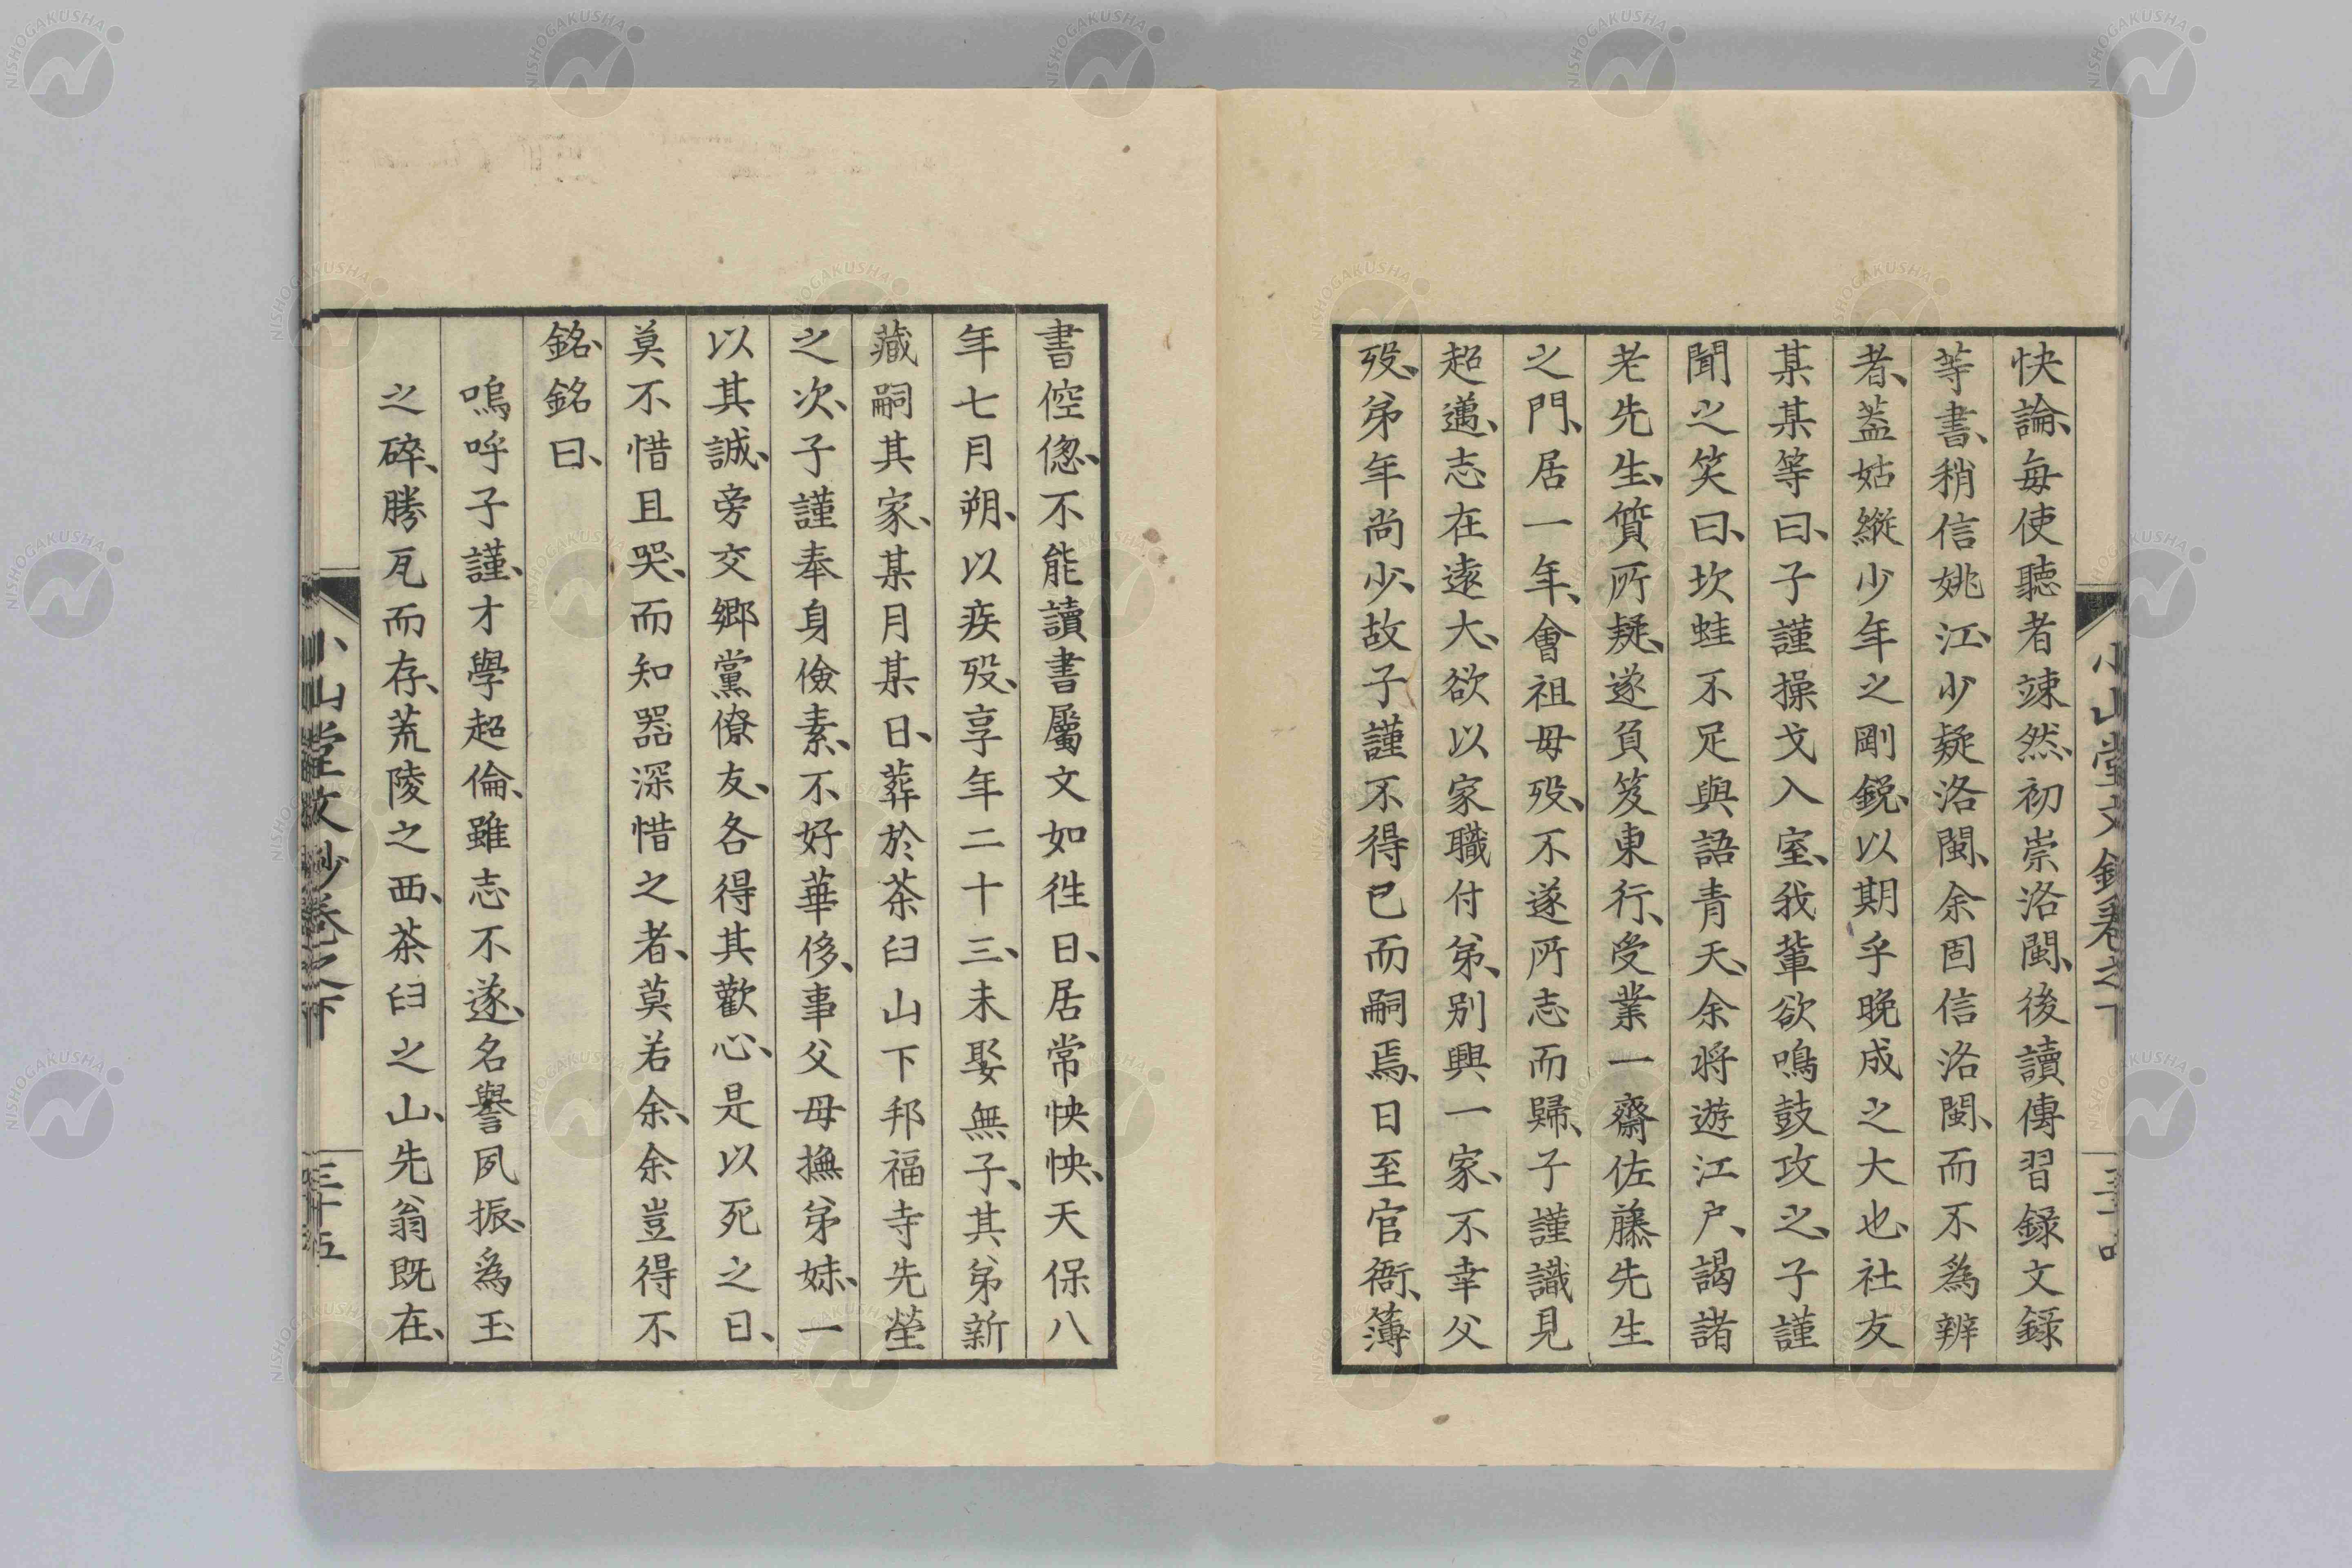 快論、每使聽者竦然、初崇洛閩、後讀傳習録文録
等書、稍信姚江、少疑洛閩、余固信洛閩、而不為辨
者、葢姑縱少年之剛鋭、以期乎晚成之大也、社友
某某等曰、子謹操戈入室、我輩欲鳴鼓攻之、子謹
聞之笑曰、坎蛙不足與語青天、余将遊江户、謁諸
老先生、質所疑、遂負笈東行、受業一齋佐藤先生
之門、居一年、會祖母歿、不遂所志而歸、子謹識見
超邁、志在遠大、欲以家職付弟、别興一家、不幸父
歿、弟年尚少、故子謹不得已而嗣焉、日至官衙、簿
書倥傯、不能讀書屬文如徃日、居常怏怏、天保八
年七月朔、以疾歿、享年二十三、未娶無子、其弟新
藏嗣其家、某月某日、葬於茶臼山下邦福寺先塋
之次、子謹奉身儉素、不好華侈、事父母撫弟妹、一
以其誠、旁交郷黨僚友、各得其歡心、是以死之日、
莫不惜且哭、而知器深惜之者、莫若余、余豈得不
銘、銘曰、
嗚呼子謹、才學超倫、雖志不遂、名譽夙振、為玉
之碎、勝瓦而存、荒陵之西、茶臼之山、先翁既在、
小山堂文鈔卷之下
三十五
NISHOGAKUSHA